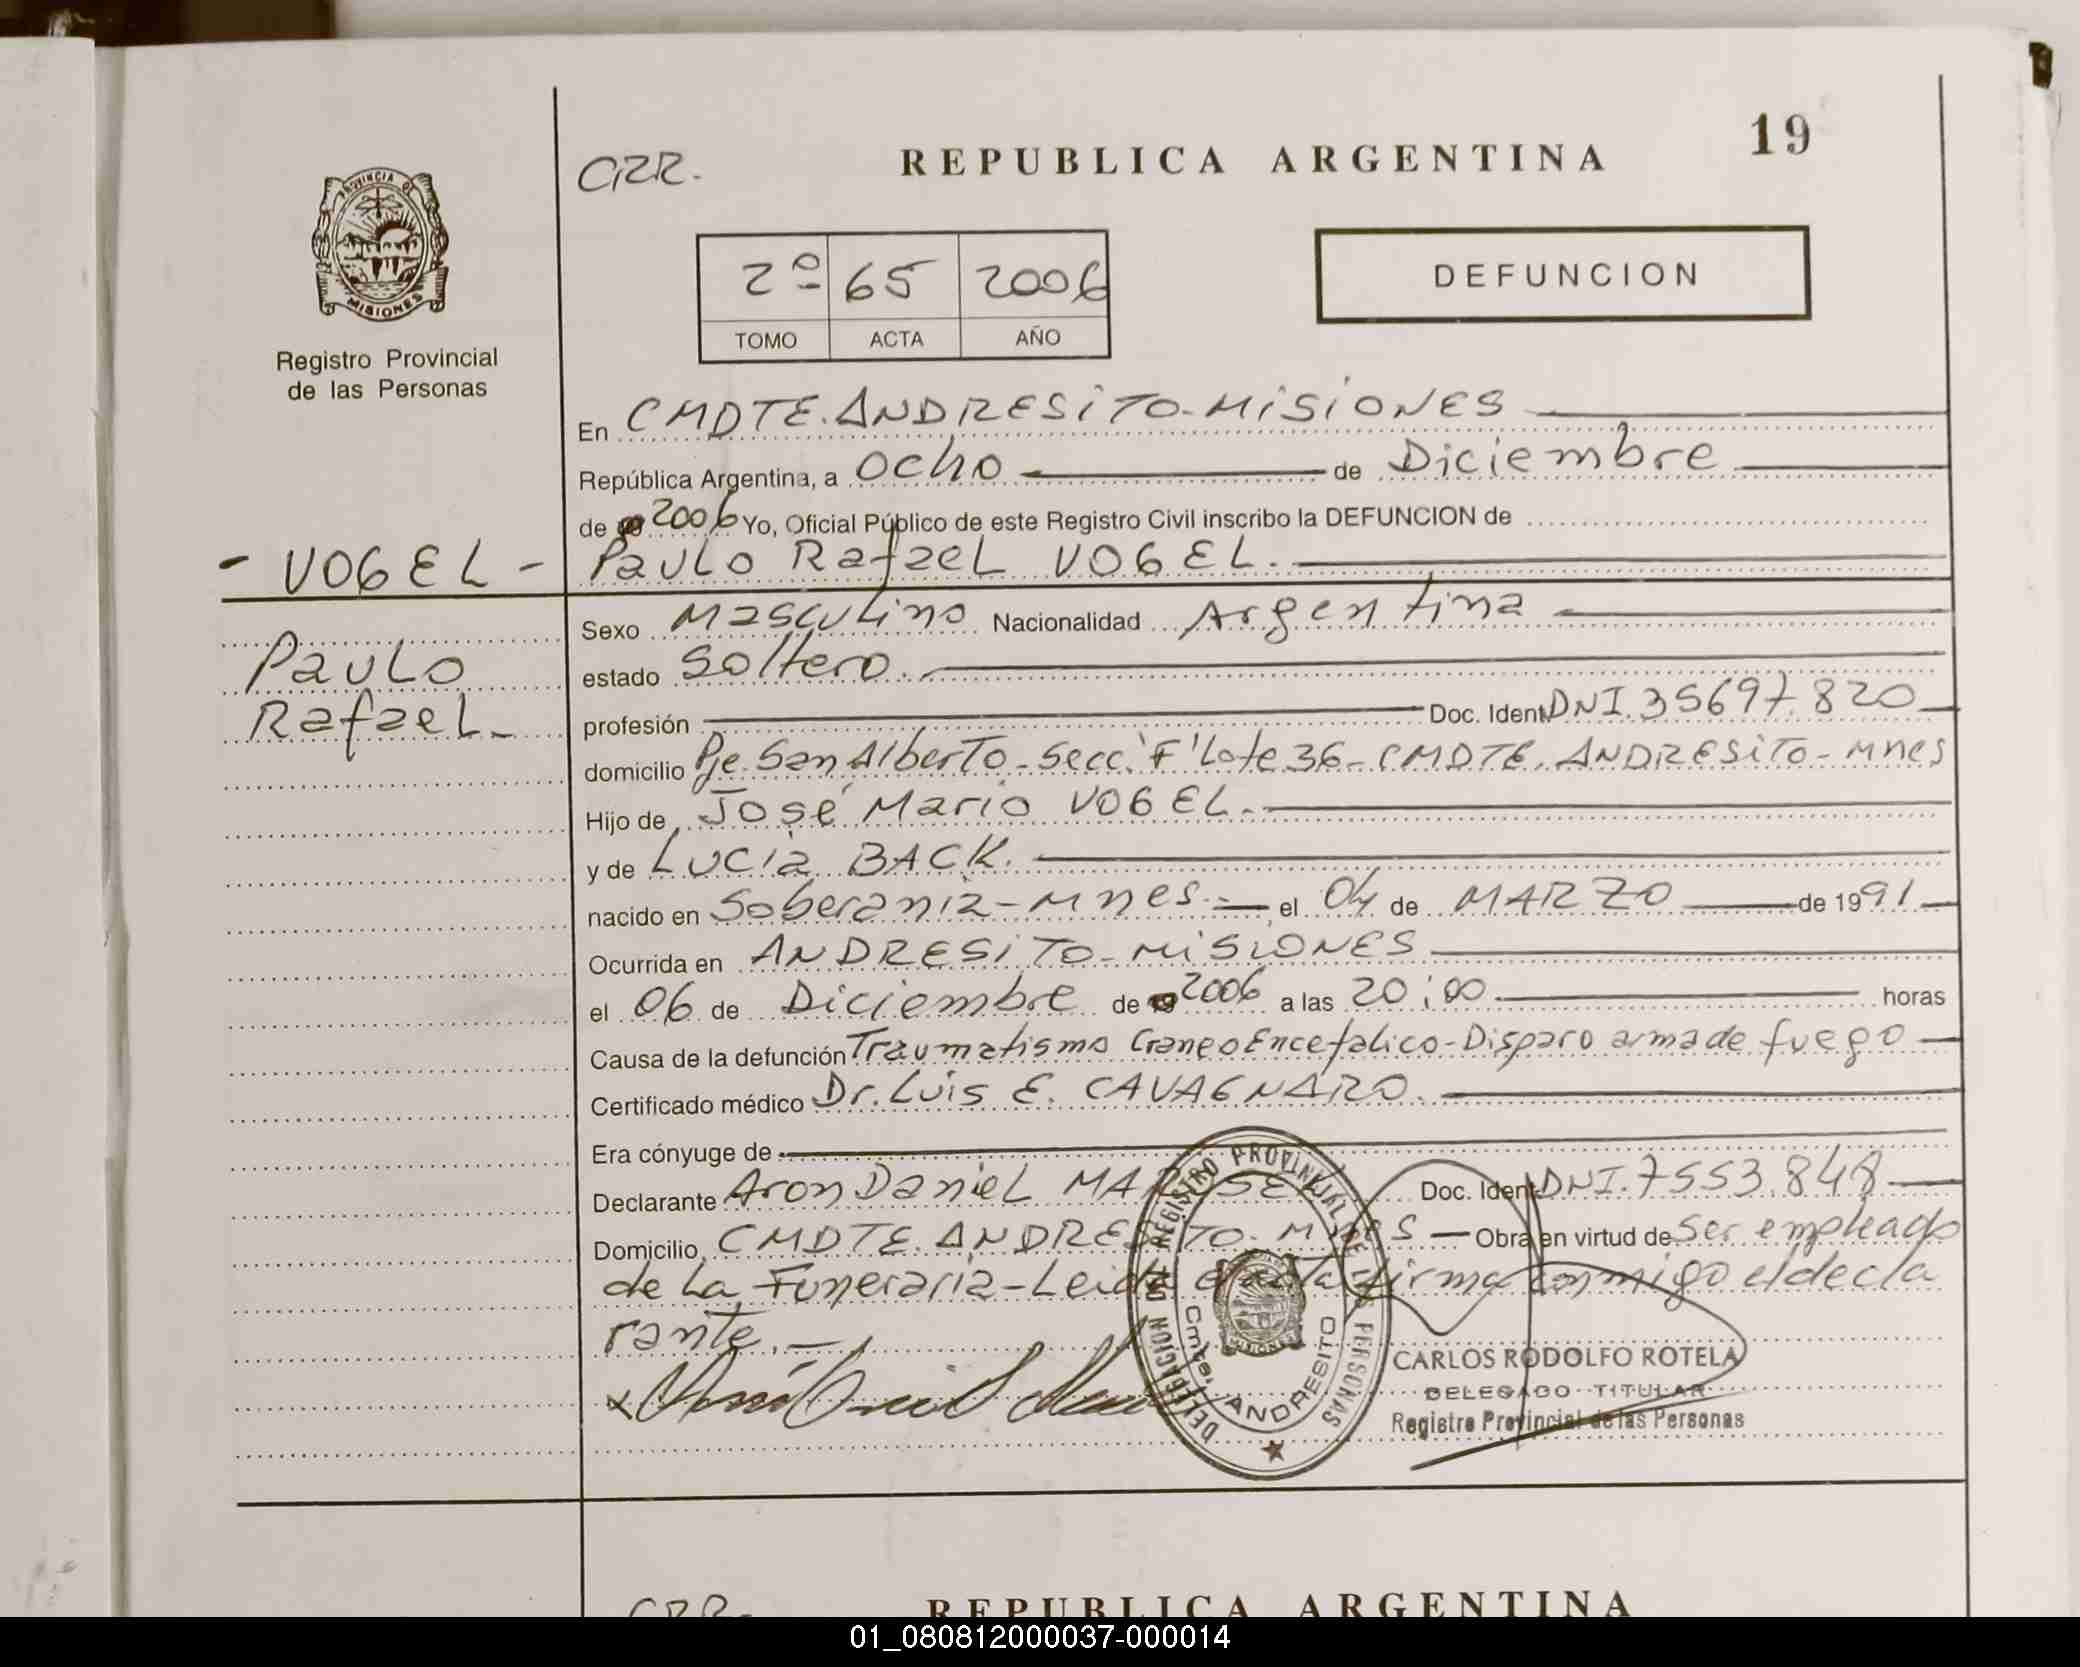 19
CRR.
REPUBLICA ARGENTINA
PROVINCIA DE
MISIONES
Registro Provincial
de las Personas
2º 65 2006
TOMO ACTA AÑO
DEFUNCION
En CMDTE. ANDRESITO-MISIONES
República Argentina, a ocho de Diciembre
de 2006 Yo, Oficial Público de este Registro Civil inscribo la DEFUNCION de
- VOGEL -
Paulo Rafael VOGEL.
Paulo
Rafael.
Sexo Masculino Nacionalidad Argentina
estado Soltero.
profesión Doc. Ident. DNI. 35697.820
domicilio Pje. San Alberto - Secc. "F" Lote 36 - CMDTE. ANDRESITO - Mnes
Hijo de José Mario VOGEL.
y de Lucía BACK.
nacido en Soberania - Mnes. el 04 de MARZO de 1991
Ocurrida en ANDRESITO - MISIONES
el 06 de Diciembre de 2006 a las 20:00 horas
Causa de la defunción Traumatismo CraneoEncefalico - Disparo arma de fuego
Certificado médico Dr. Luis E. CAVAGNARO.
Era cónyuge de
Declarante Aron Daniel Doc. Ident. DNI. 7553.848
Domicilio CMDTE. ANDRESITO - Mnes Obra en virtud de Ser empleado
de La Funeraria - Leida el acta firma conmigo el decla
rante.
DELEGACION DEL REGISTRO PROVINCIAL DE LAS PERSONAS
Cmte. ANDRESITO
MISIONES
CARLOS RODOLFO ROTELA
DELEGADO TITULAR
Registro Provincial de las Personas
CRR.
REPUBLICA ARGENTINA
01_080812000037-000014